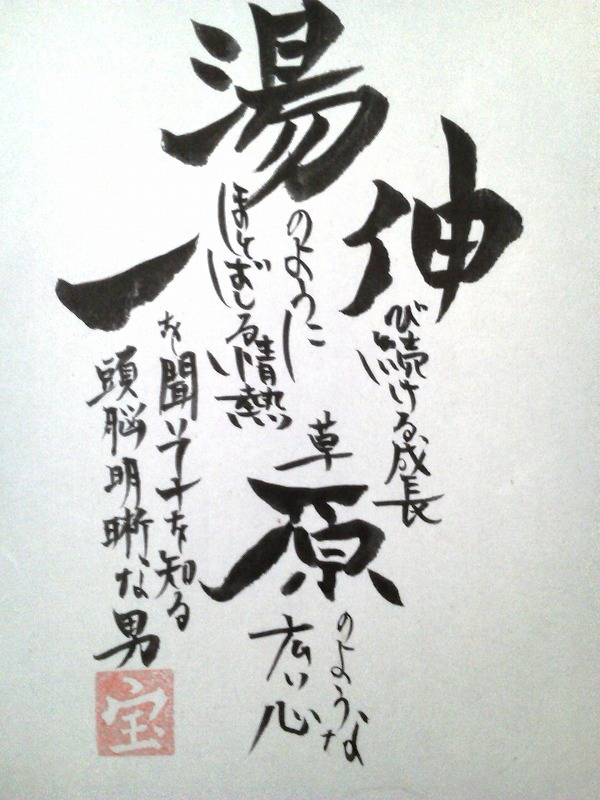 伸び続ける成長
湯のように
ほとばしる情熱
草原のような
広い心
一を聞いて十を知る
頭脳明晰な男
宝